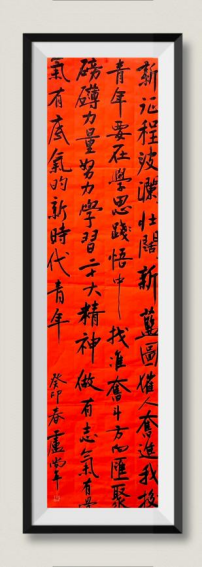 新征程波瀾壯闊新藍圖催人奮進我校
青年要在學思踐悟中找準奮斗方向匯聚
磅礴力量努力學習二十大精神做有志氣有骨
氣有底氣的新時代青年
癸卯春盧尚年